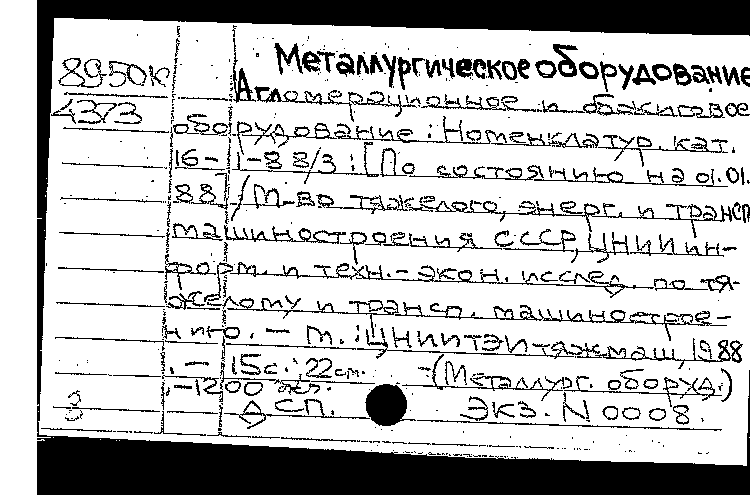 Металлургическое оборудование
89-50к
Агломерационное и обжиговое
4373
оборудование : Номенклатур. кат.
16-1-88/3 : [По состоянию на 01.01.
88] / М-во тяжелого, энерг. и трансп.
машиностроения СССР, ЦНИИ ин-
форм. и техн.-экон. исслед. по тя-
желому и трансп. машинострое-
нию. - М. : ЦНИИТЭИтяжмаш, 1988
. - 15с.; 22см. - (Металлург. оборуд.)
. - 1200 экз.
ДСП. ЭКЗ. N 0008.